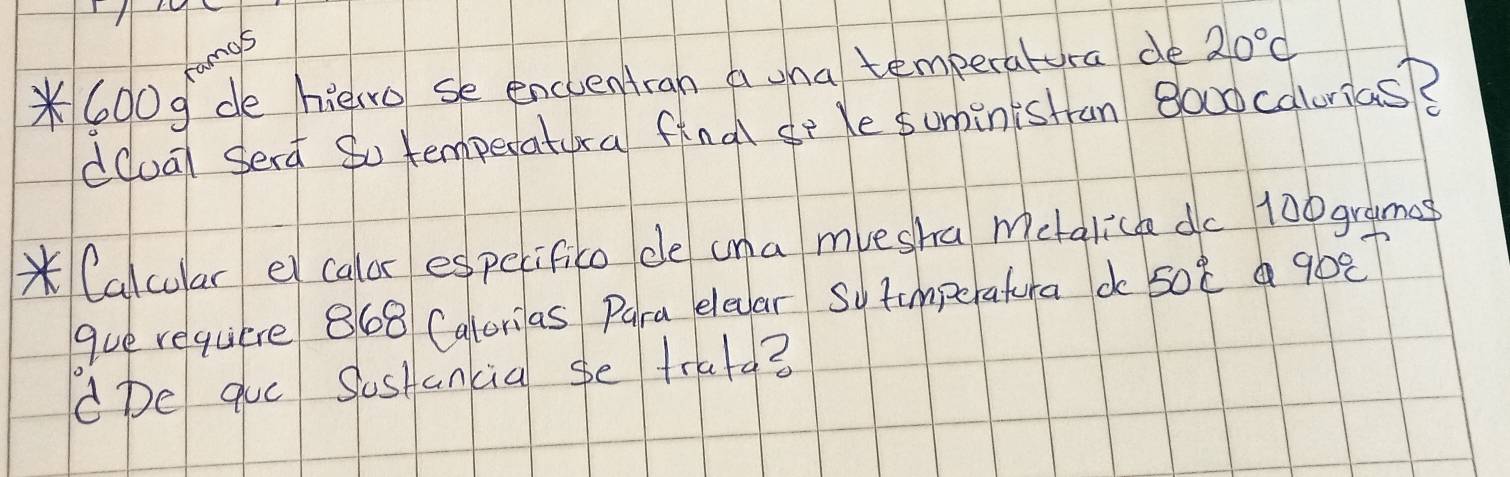 * 600gramos de hierro se encuentran a una temperatura de 20°C
¿Cuál será su temperatura final si le suministran 8000 calorias?
* Calcular el calor especifico de una muestra metalica de 100 gramos
que requiere 868 Calorias Para elevar su temperatura de 50°C a 90°C
¿De que Sustancia se trata?